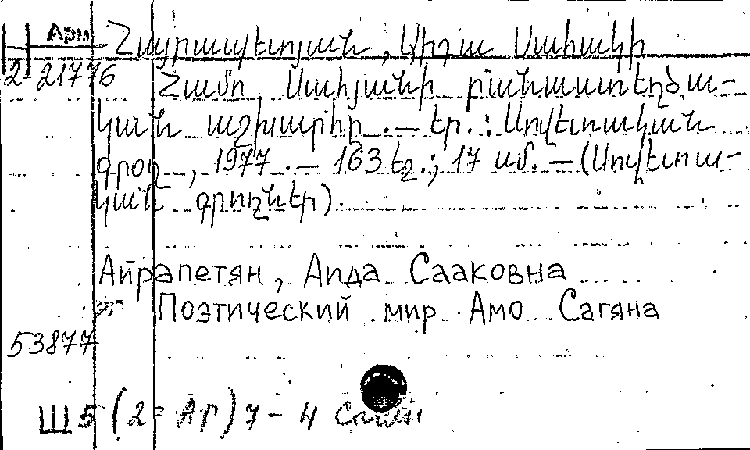 Арм Հայրապետյան, Աիդա Սահակի
2 21776 Համո Սահյանի բանաստեղծա-
կան աշխարհը. — Եր.: Սովետական
գրող, 1977. — 163 էջ.; 17 սմ. — (Սովետա-
կան գրողներ).
Айрапетян, Аида Сааковна
Поэтический мир Амо Сагяна
53877
Ш5(2=Ар)7-4